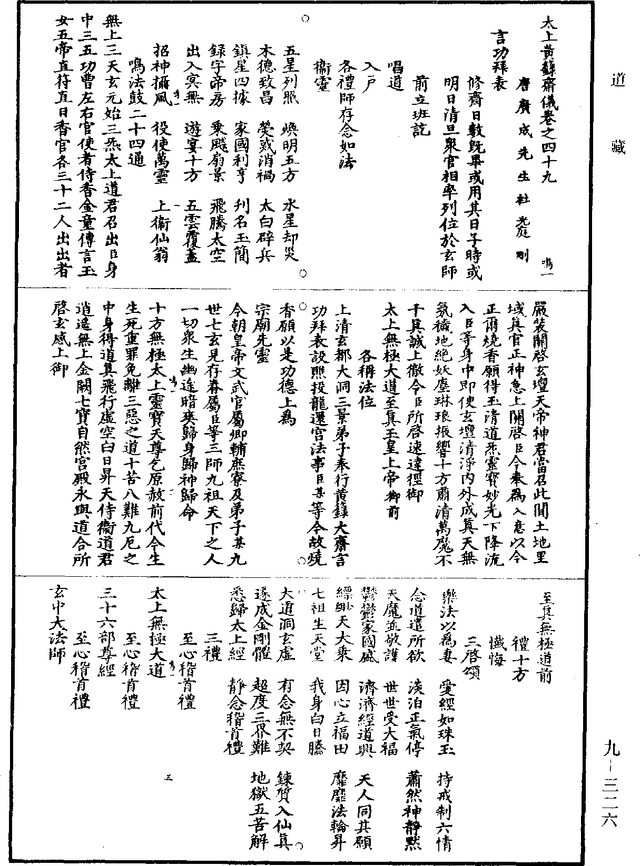 道藏
太上黃籙齋儀卷之四十九　鳴一
唐廣成先生杜光庭刪
言功拜表
修齋日數既畢或用其日子時或
明日清旦眾官相率列位於玄師
前立班訖
唱道
入戶
各禮師存念如法
衛靈
五星列照　煥明五方　水星却災
木德致昌　熒惑消禍　太白辟兵
鎮星四據　家國利亨　刊名玉簡
錄字帝房　乘飈扇景　飛騰太空
出入冥無　遊宴十方　五雲覆蓋
招神攝風　役使萬靈　上衛仙翁
鳴法鼓二十四通
無上三天玄元始三炁太上道君召出臣身
中三五功曹左右官使者侍香金童傳言玉
女五帝直符直日香官各三十二人出出者
嚴裝關啓玄壇天帝神君當召此間土地里
域真官正神急上關啓臣今奉為入意以今
正爾燒香願得玉清道炁靈寶妙光下降流
入臣等身中即使玄壇清淨內外成真天無
氛穢地絕妖塵琳琅振響十方肅清萬魔不
干真誠上徹令臣所啓速達徑御
太上無極大道至真玉皇上帝御前
各稱法位
上清玄都大洞三景弟子奉行黃籙大齋言
功拜表設醮投龍還宮法事臣某等今故燒
香願以是功德上為
宗廟先靈
今朝皇帝文武官屬卿輔庶寮及弟子某九
世七玄見存眷屬臣等三師九祖天下之人
一切眾生幽途暗爽歸身歸神歸命
十方無極太上靈寶天尊乞原赦前代今生
生死重罪免離三惡之道十苦八難九厄之
中身得道真飛行虛空白日昇天侍衛道君
逍遙無上金闕七寶自然宮殿永與道合所
啓玄感上御
至真無極道前
禮十方
懺悔
三啓頌
樂法以為妻　愛經如珠玉　持戒制六情
念道遣所欲　淡泊正氣停　蕭然神靜默
天魔並敬護　世世受大福
鬱鬱家國盛　濟濟經道興　天人同其願
縹緲天大乘　因心立福田　靡靡法輪昇
七祖生天堂　我身白日騰
大道洞玄虛　有念無不契　鍊質入仙真
遂成金剛體　超度三界難　地獄五苦解
悉歸太上經　靜念稽首禮
三禮
至心稽首禮
太上無極大道
至心稽首禮
三十六部尊經
至心稽首禮
玄中大法師
三
九－三二六